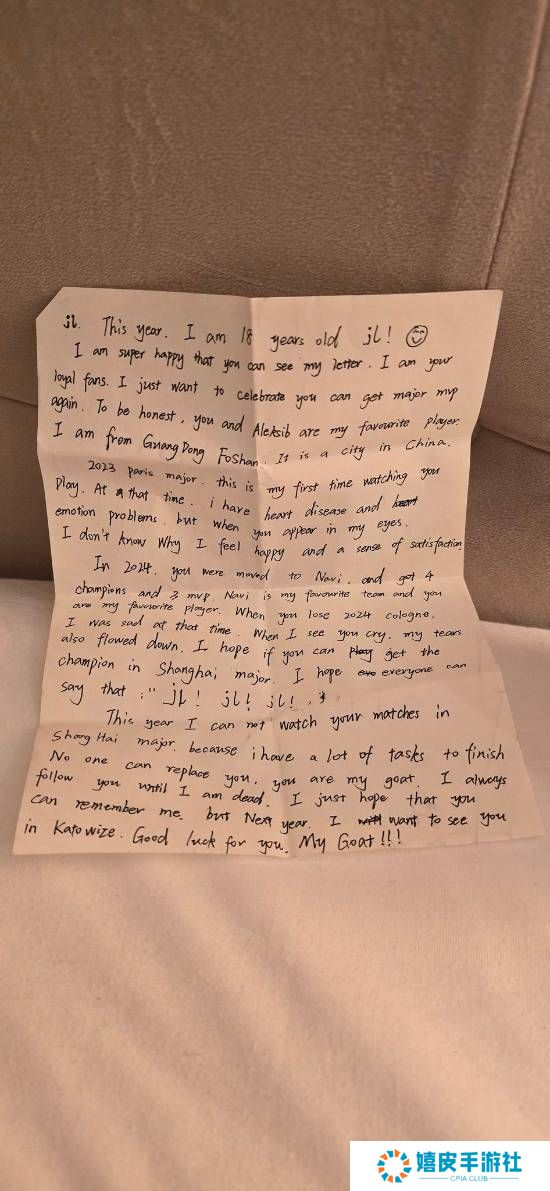 jl. This year. I am 18 years old jl!
I am super happy that you can see my letter. I am your
loyal fans. I just want to celebrate you can get major mvp
again. To be honest, you and Aleksib are my favourite player.
I am from GuangDong FoShan. It is a city in China.
2023 paris major. this is my first time watching you
play. At that time. i have heart disease and heart
emotion problems. but when you appear in my eyes.
I don't know why I feel happy and a sense of satisfaction
In 2024. you were moved to Navi. and got 4
champions and 3 mvp. Navi is my favourite team and you
are my favourite player. When you lose 2024 cologne.
I was sad at that time. When I see you cry. my tears
also flowed down. I hope if you can play get the
champion in Shanghai major. I hope eve everyone can
say that :" jl! jl! jl! "
This year I can not watch your matches in
ShangHai major. because i have a lot of tasks to finish
No one can replace you. you are my goat. I always
follow you until I am dead. I just hope that you
can remember me. but Next year. I want to see you
in Katowize. Good luck for you. My Goat!!!
嬉皮手游社
CPIA.CLUB